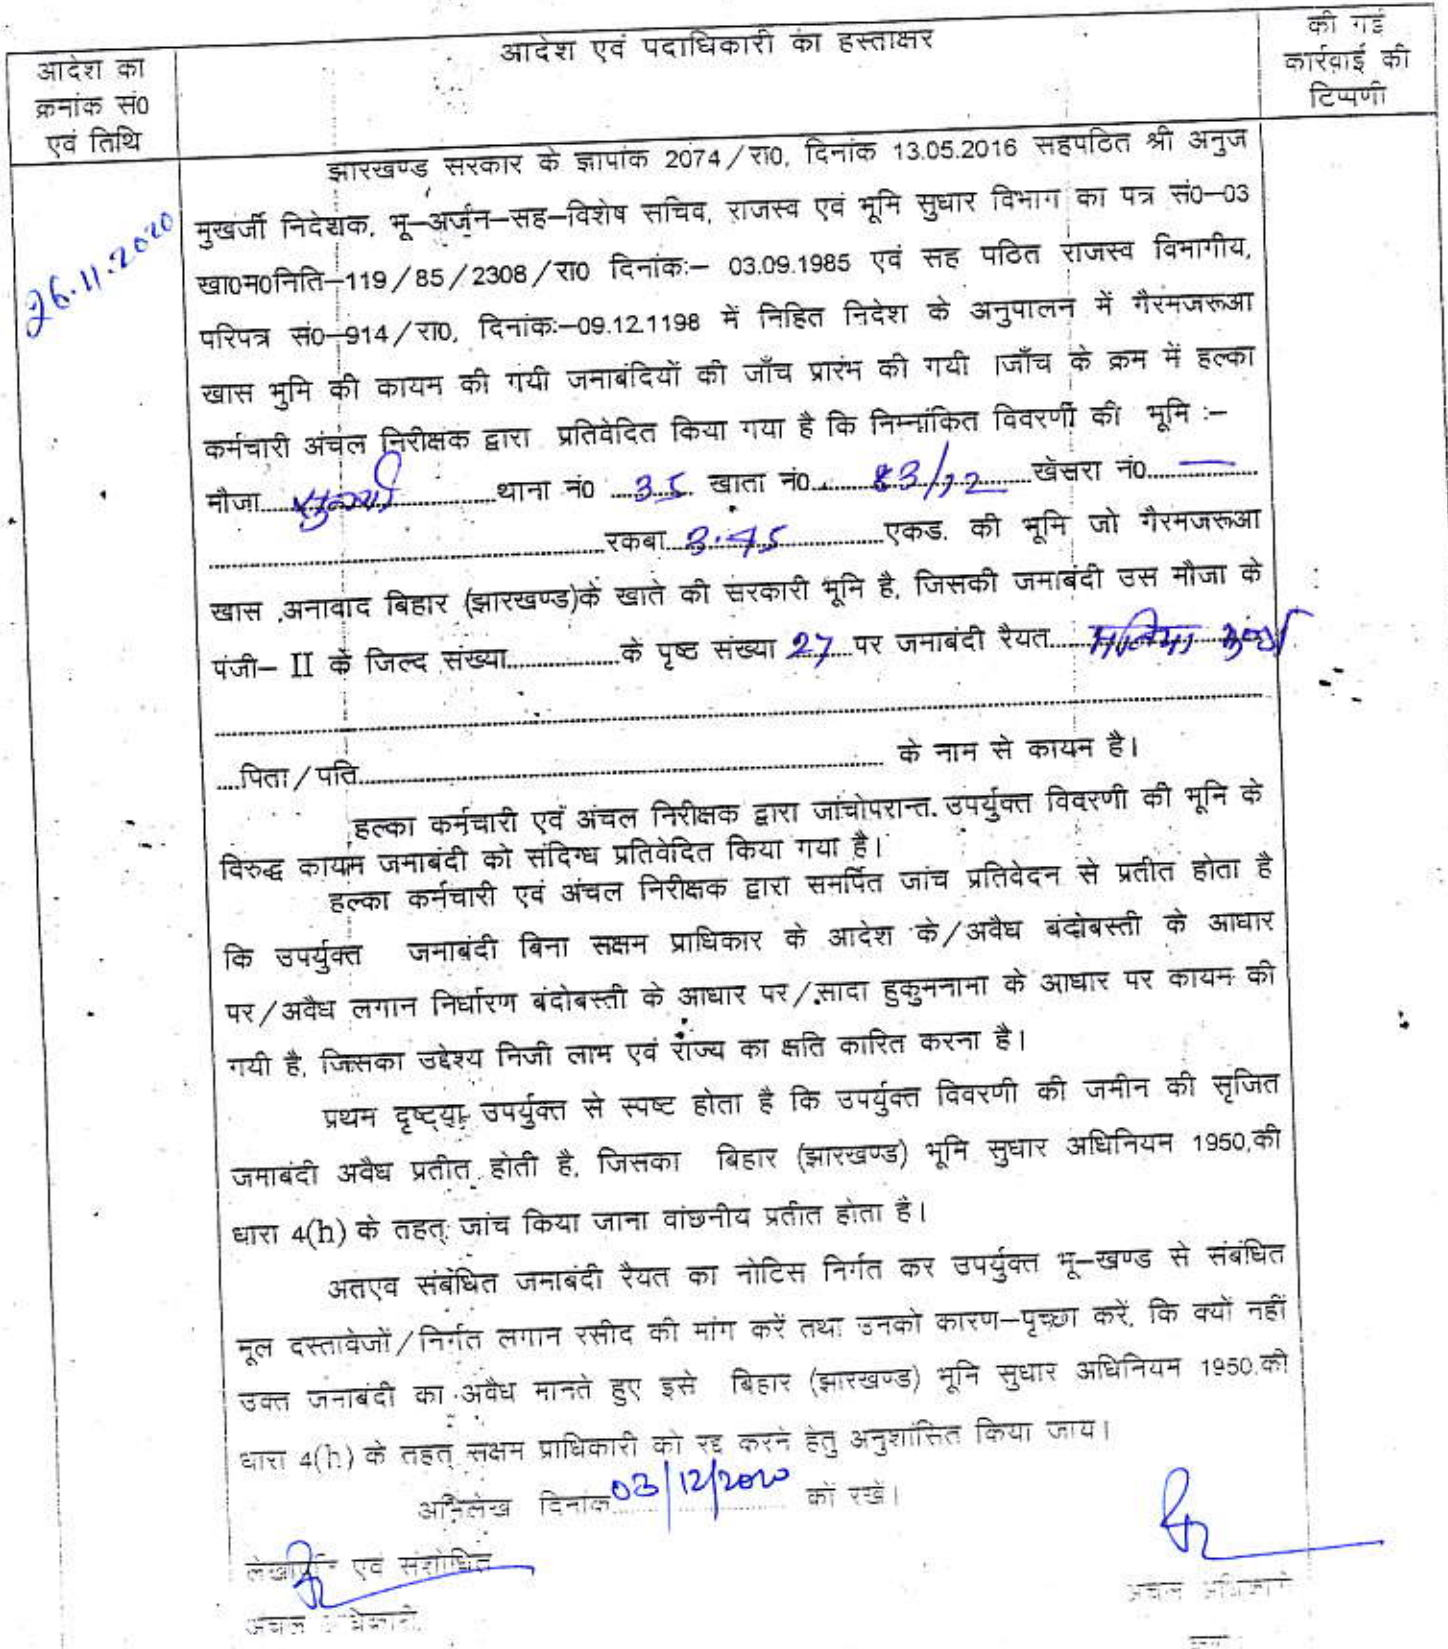 आदेश का
क्रमांक सं0
एवं तिथि
आदेश एवं पदाधिकारी का हस्ताक्षर
की गई
कार्रवाई की
टिप्पणी
26.11.2020
झारखण्ड सरकार के ज्ञापांक 2074/रा0, दिनांक 13.05.2016 सहपठित श्री अनुज
मुखर्जी निदेशक, भू–अर्जन–सह–विशेष सचिव, राजस्व एवं भूमि सुधार विभाग का पत्र सं0–03
खा0म0निति–119/85/2308/रा0 दिनांकः– 03.09.1985 एवं सह पठित राजस्व विभागीय,
परिपत्र सं0–914/रा0, दिनांकः–09.12.1198 में निहित निदेश के अनुपालन में गैरमजरूआ
खास भुमि की कायम की गयी जमाबंदियों की जाँच प्रारंभ की गयी ।जाँच के क्रम में हल्का
कर्मचारी अंचल निरीक्षक द्वारा प्रतिवेदित किया गया है कि निम्नांकित विवरणी की भूमि :–
मौजा थाना नं0 35 खाता नं0 83/12 खेसरा नं0 —
रकबा 3.45 एकड. की भूमि जो गैरमजरूआ
खास ,अनावाद बिहार (झारखण्ड)के खाते की सरकारी भूमि है, जिसकी जमाबंदी उस मौजा के
पंजी– II के जिल्द संख्या के पृष्ट संख्या 27 पर जमाबंदी रैयत
पिता/पति के नाम से कायम है।
हल्का कर्मचारी एवं अंचल निरीक्षक द्वारा जांचोपरान्त. उपर्युक्त विवरणी की भूमि के
विरुद्ध कायम जमाबंदी को संदिग्ध प्रतिवेदित किया गया है।
हल्का कर्मचारी एवं अंचल निरीक्षक द्वारा समर्पित जांच प्रतिवेदन से प्रतीत होता है
कि उपर्युक्त जमाबंदी बिना सक्षम प्राधिकार के आदेश के/अवैध बंदोबस्ती के आधार
पर/अवैध लगान निर्धारण बंदोबस्ती के आधार पर/सादा हुकुमनामा के आधार पर कायम की
गयी है, जिसका उद्देश्य निजी लाभ एवं राज्य का क्षति कारित करना है।
प्रथम दृष्ट्या उपर्युक्त से स्पष्ट होता है कि उपर्युक्त विवरणी की जमीन की सृजित
जमाबंदी अवैध प्रतीत होती है, जिसका बिहार (झारखण्ड) भूमि सुधार अधिनियम 1950,की
धारा 4(h) के तहत् जांच किया जाना वांछनीय प्रतीत होता है।
अतएव संबंधित जमाबंदी रैयत का नोटिस निर्गत कर उपर्युक्त भू–खण्ड से संबंधित
मूल दस्तावेजों/निर्गत लगान रसीद की मांग करें तथा उनको कारण–पृच्छा करें, कि क्यों नहीं
उक्त जमाबंदी का अवैध मानते हुए इसे बिहार (झारखण्ड) भूमि सुधार अधिनियम 1950,की
धारा 4(h) के तहत् सक्षम प्राधिकारी को रद्द करने हेतु अनुशांसित किया जाय।
अभिलेख दिनांक 03/12/2020 को रखें।
एवं संशोधित
अंचल अधिकारी
अंचल अधिकारी